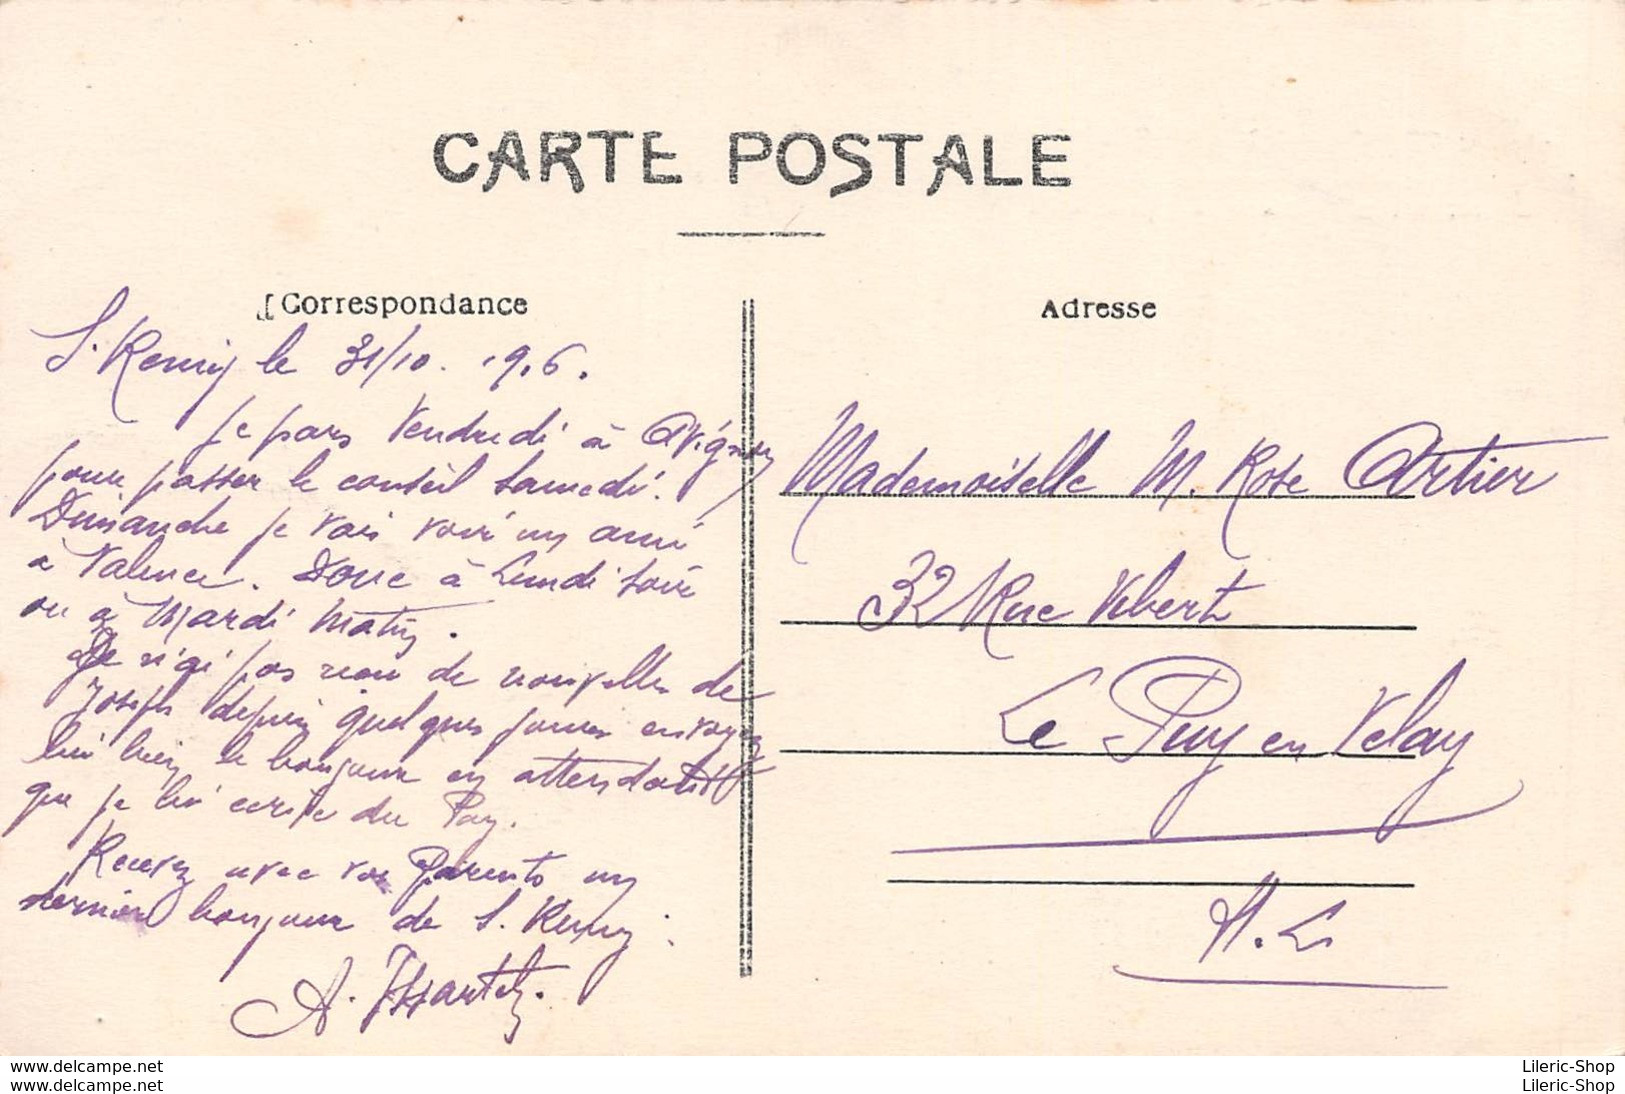 CARTE POSTALE
Correspondance
Adresse
S. Remy le 31/10. 19.6.
Je pars Vendredi à Avignon
pour passer le conseil Samedi.
Dimanche je vais voir un ami
à Valence. Donc à Lundi soir
ou à Mardi matin.
Je n'ai pas reçu de nouvelles de
Joseph depuis quelques jours envoyez
lui bien le bonjour en attendant
que je lui écrive du Puy.
Recevez avec vos Parents un
dernier bonjour de S. Remy.
Mademoiselle M. Rose Artier
32 Rue Vibert
Le Puy en Velay
H.L
Lileric-Shop
Lileric-Shop
www.delcampe.net
www.delcampe.net